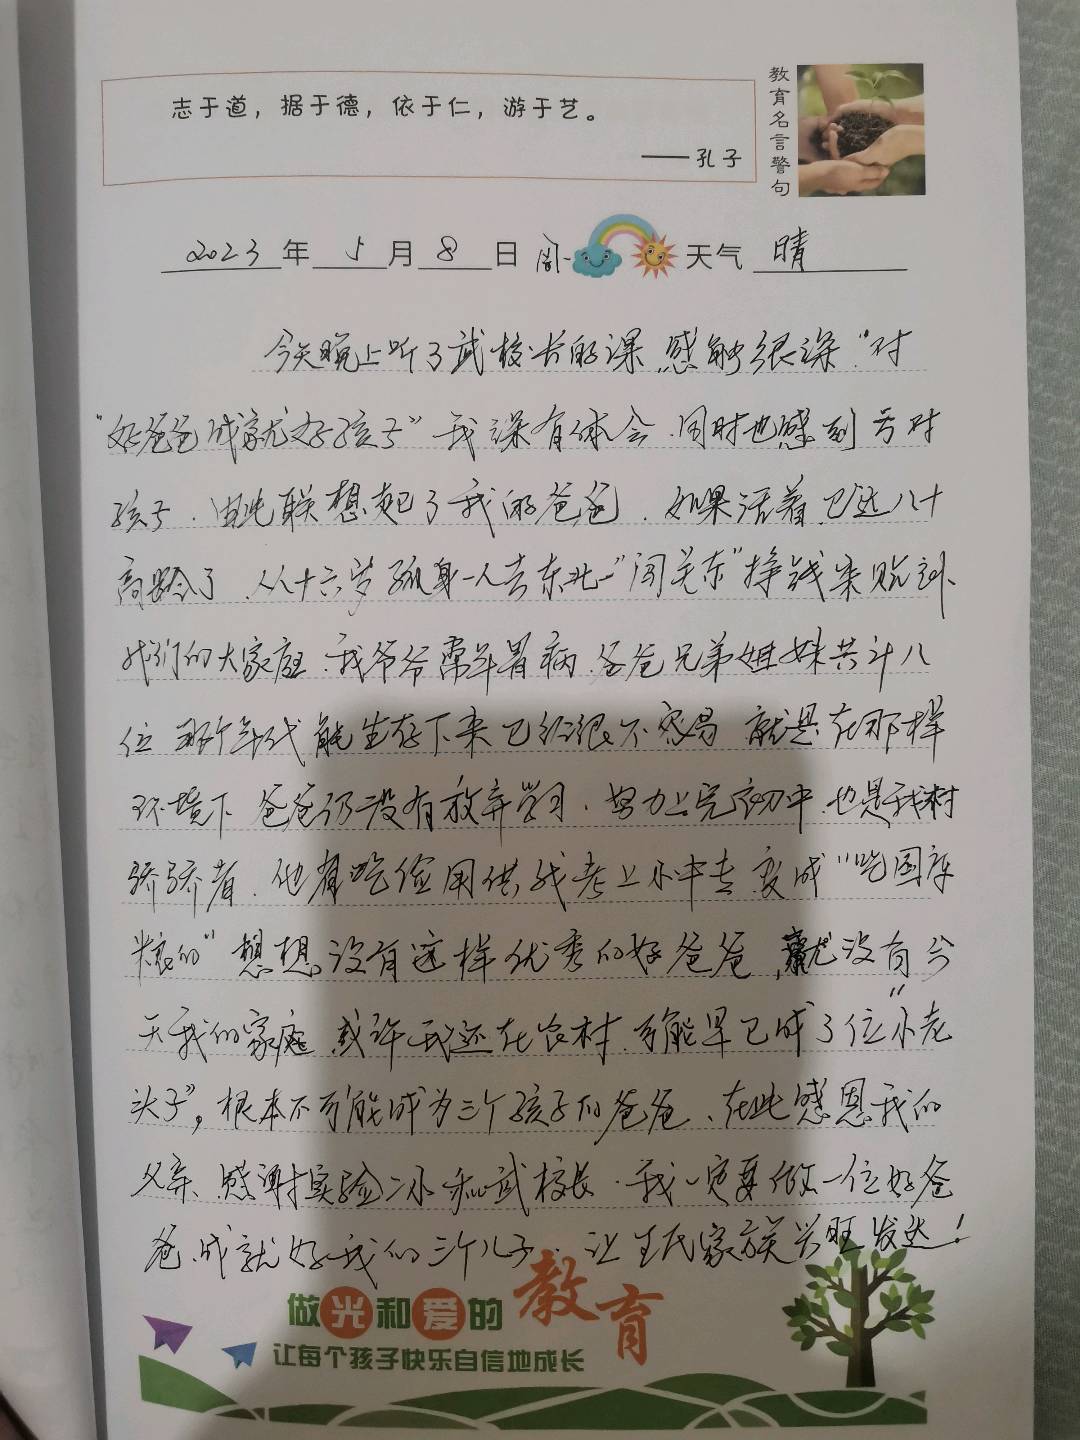 志于道，据于德，依于仁，游于艺。
——孔子
教育名言警句
2023年5月8日 周一 天气 晴
今天晚上听了武校长的课，感触很深“对
“好爸爸成就好孩子”我深有体会.同时也感到亏对
孩子.由此联想起了我的爸爸.如果活着,已近八十
高龄了.从十六岁孤身一人去东北“闯关东”挣钱来贴补
我们的大家庭.我爷爷常年署病.爸爸兄弟姐妹共计八
位 那个年代能生存下来已经很不容易 就是在那样
环境下 爸爸仍没有放弃学习.努力上完初中.也是我村
骄骄者.他省吃俭用供我考上小中专 变成“吃国库
粮的”想想没有这样优秀的好爸爸,就没有今
天我的家庭 或许我还在农村.可能早已成了位“小老
头子”，根本不可能成为三个孩子的爸爸、在此感恩我的
父亲、感谢实验二小和武校长.我一定要做一位好爸
爸.成就好我的三个儿子.让王氏家族兴旺发达！
做光和爱的教育
让每个孩子快乐自信地成长